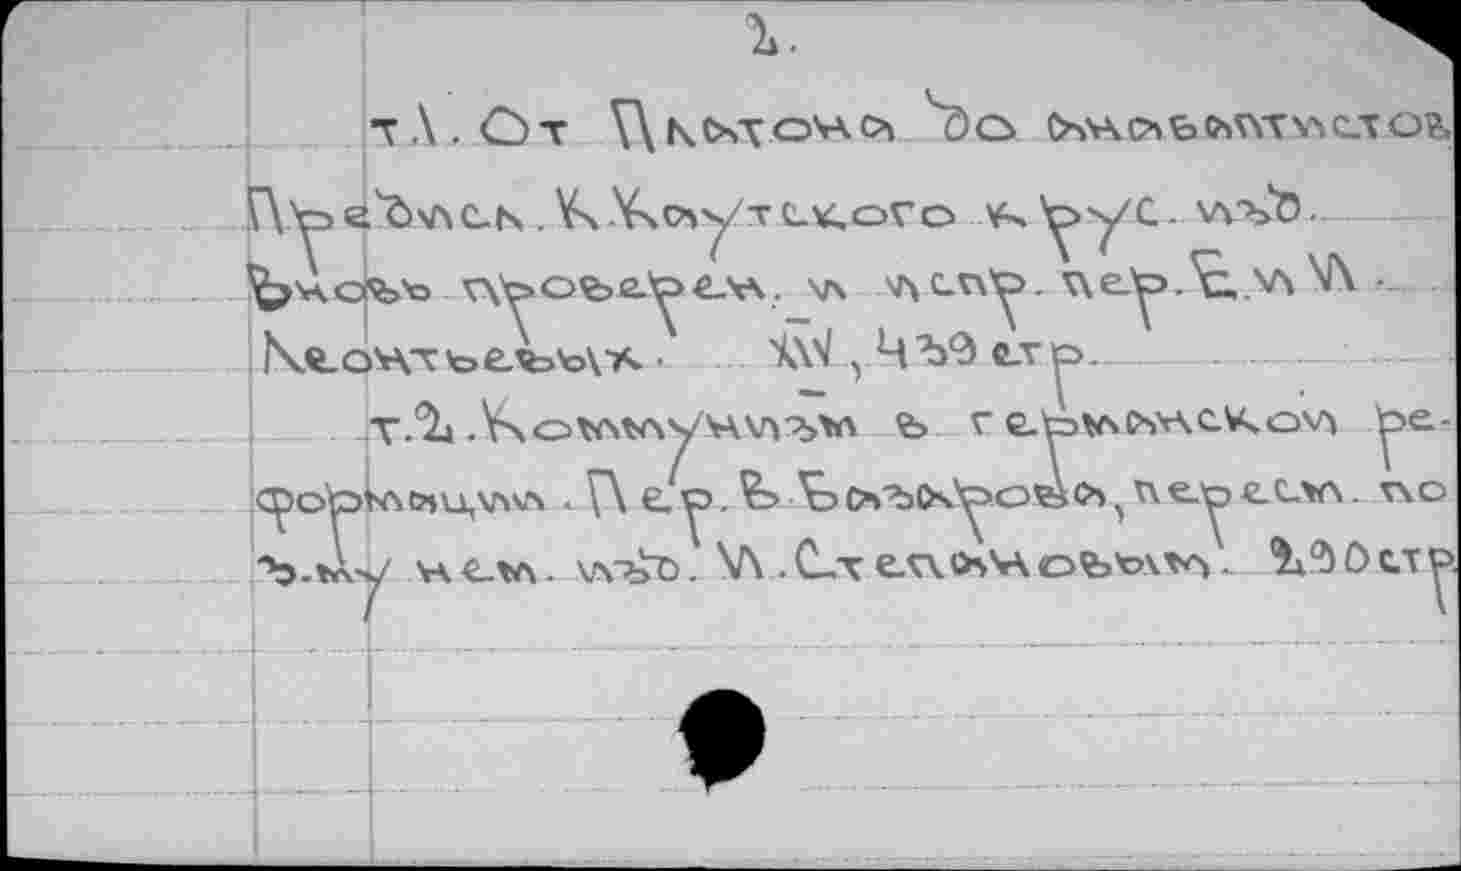 2.
т.1. От Платона до анабаптистов.
Предисл. К.Каутского к рус. изд.
Вновь проверен. и испр. пер. Е. и И.
Леонтьевых. XIV, 439 стр.
т.2. Коммунизм в германской ре-
формации. Пер. В Базарова, пересм. по
3-му нем. изд. И. Степановым. 290 стр.